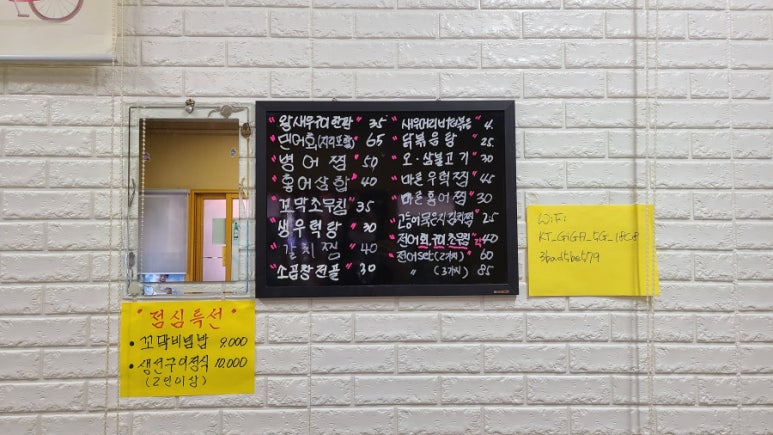 왕새우구이 한판 35
민어회(지리포함) 65
병어찜 50
홍어삼합 40
꼬막초무침 35
생우럭탕 30
갈치찜 40
소곱창전골 30
새우머리버터볶음 4
닭볶음탕 25
오·삼불고기 30
마른우럭찜 45
마른홍어찜 30
고등어묵은지김치찜 25
전어회,구이,초무침 각40
전어set (2가지) 60
" (3가지) 85
WiFi:
KT_GiGA_5G_18C8
"점심특선"
• 꼬막비빔밥 9,000
• 생선구이정식 10,000
(2인이상)